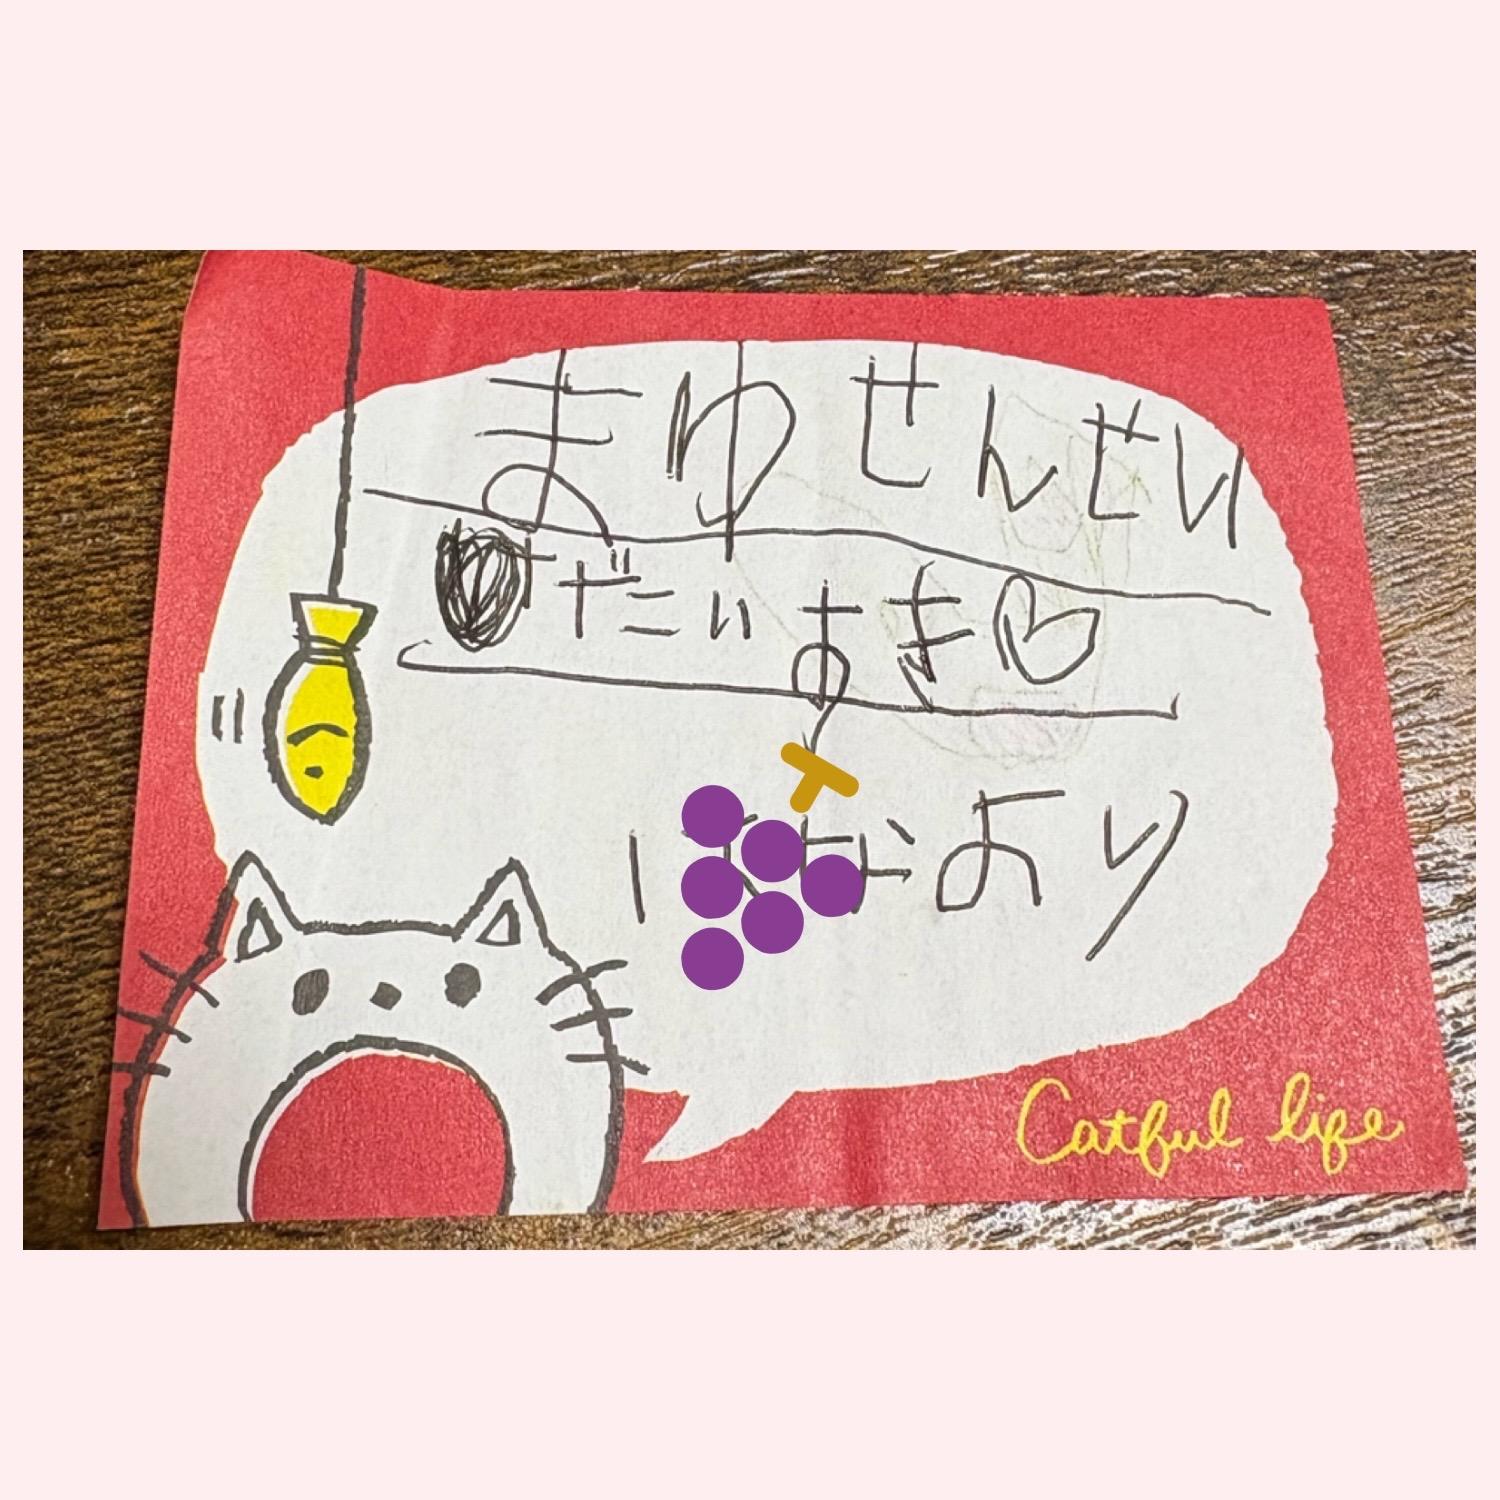 まゆせんせい
だいすき♡
より
Catful life